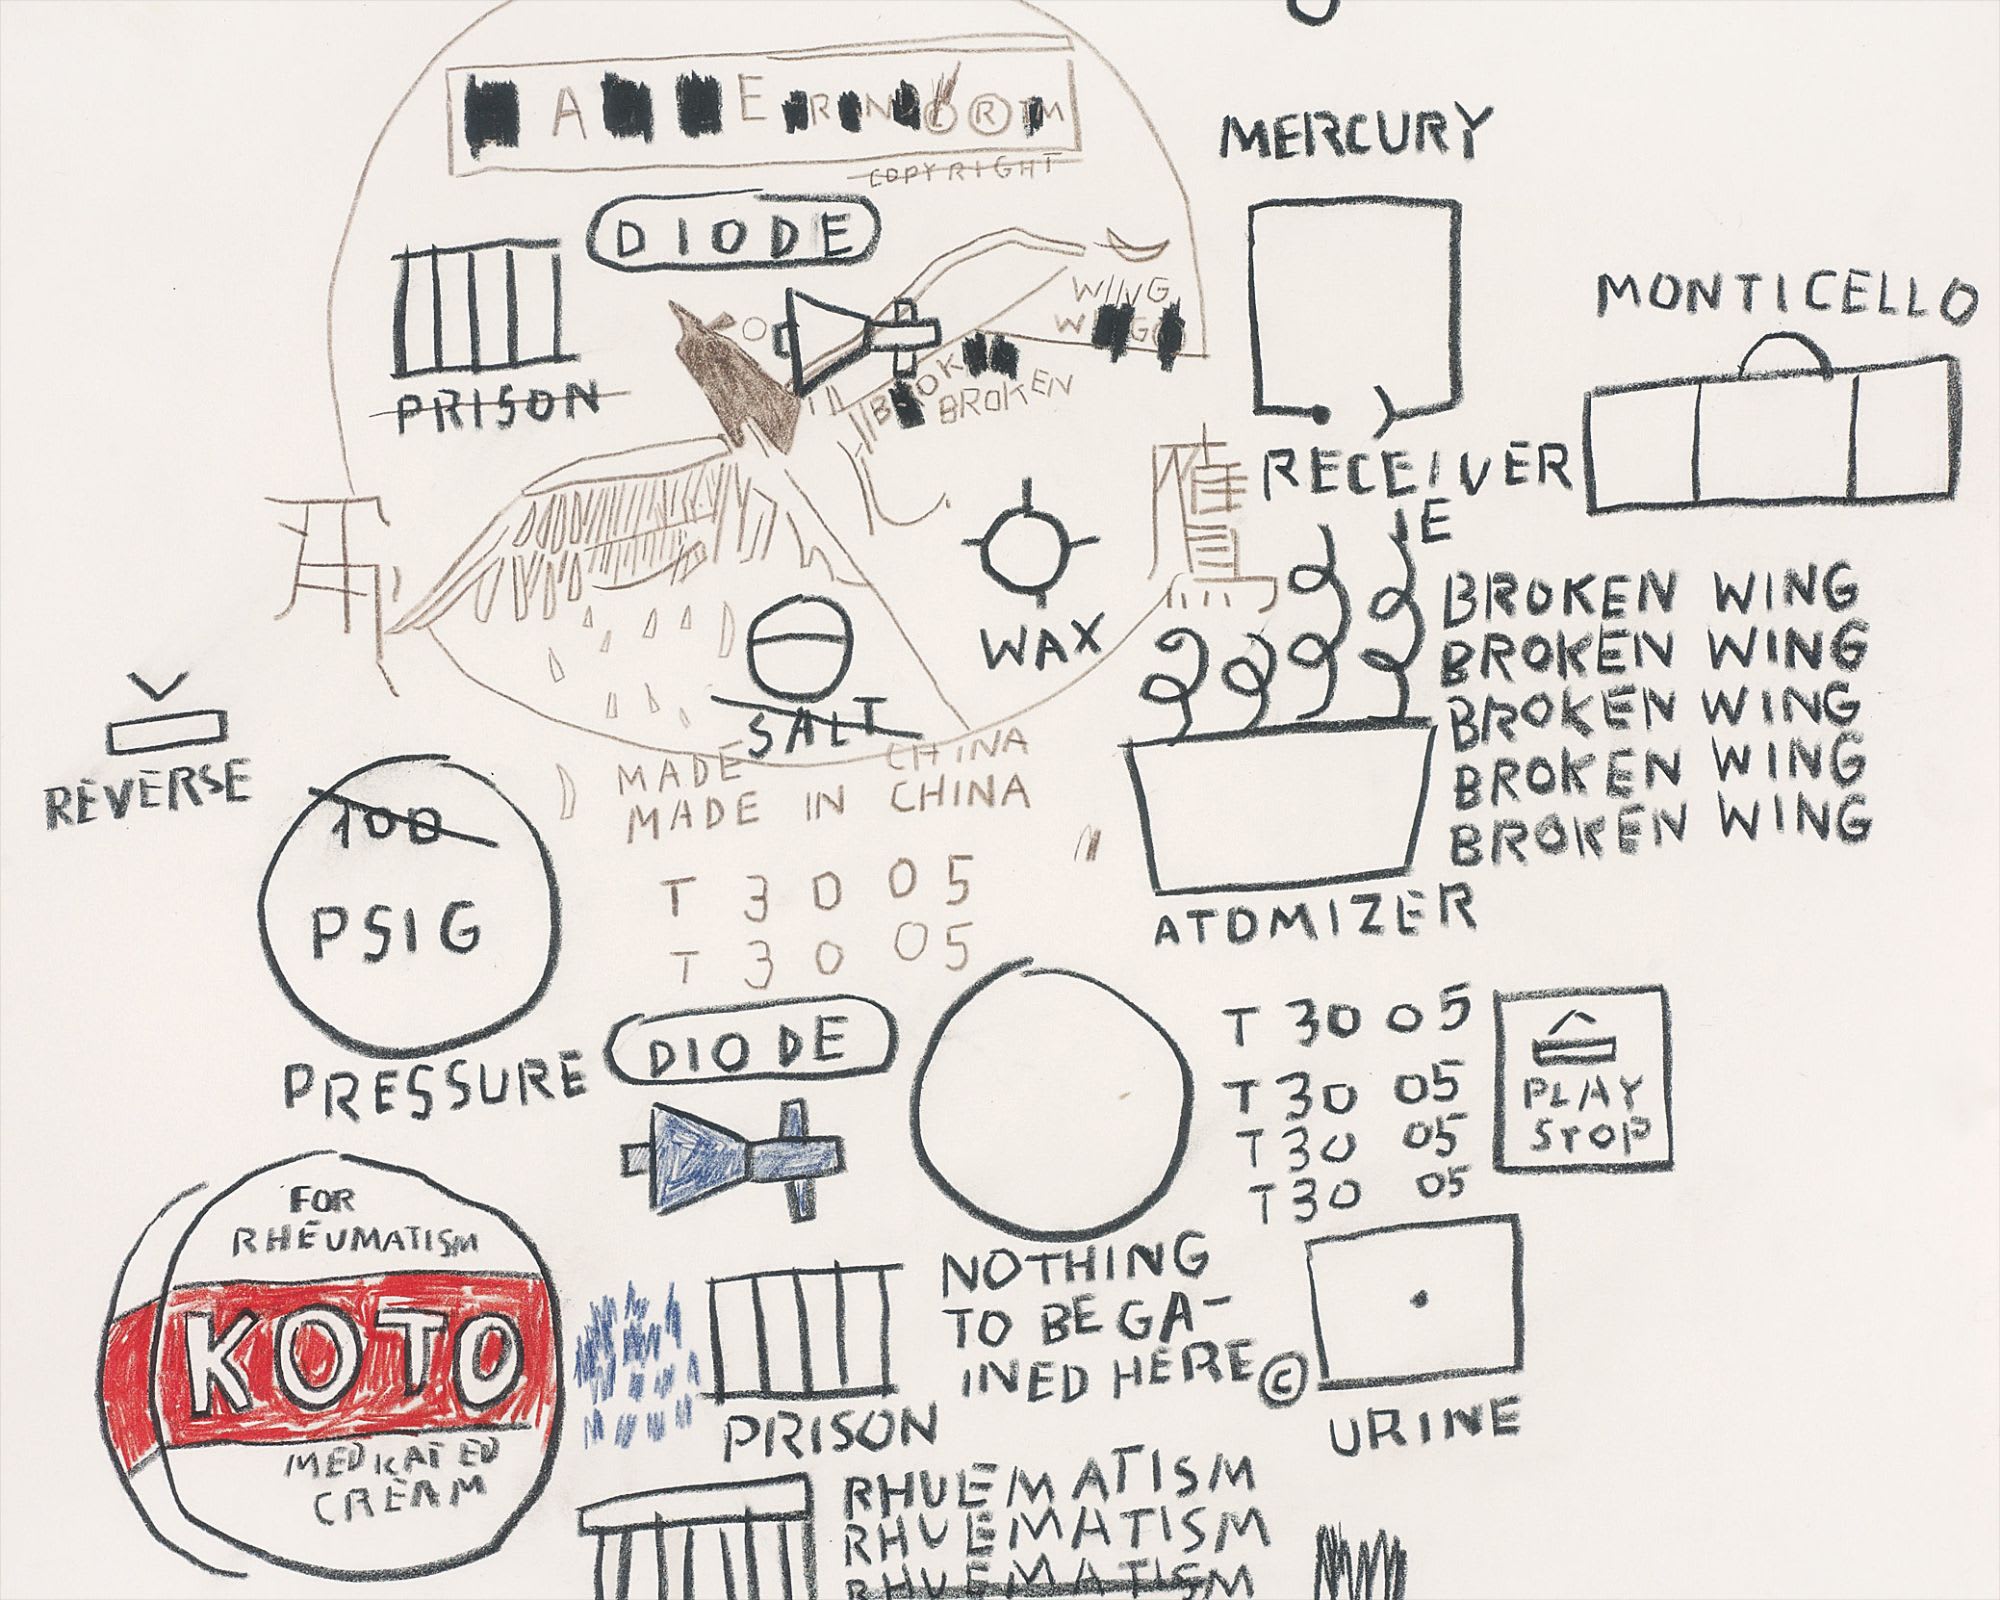 COPYRIGHT
DIODE
MERCURY
PRISON
WING
BROKEN
RECEIVER
IE
MONTICELLO
鷹
WAX
SALT
BROKEN WING
BROKEN WING
BROKEN WING
BROKEN WING
BROKEN WING
ATOMIZER
REVERSE
MADE CHINA
MADE IN CHINA
100
PSIG
PRESSURE
T 3 0 0 5
T 3 0 0 5
DIODE
T 30 05
T 30 05
T 30 05
T 30 05
PLAY
STOP
FOR
RHEUMATISM
KOTO
MEDICATED
CREAM
PRISON
NOTHING
TO BE GA-
INED HERE ©
URINE
RHUEMATISM
RHUEMATISM
RHUEMATISM